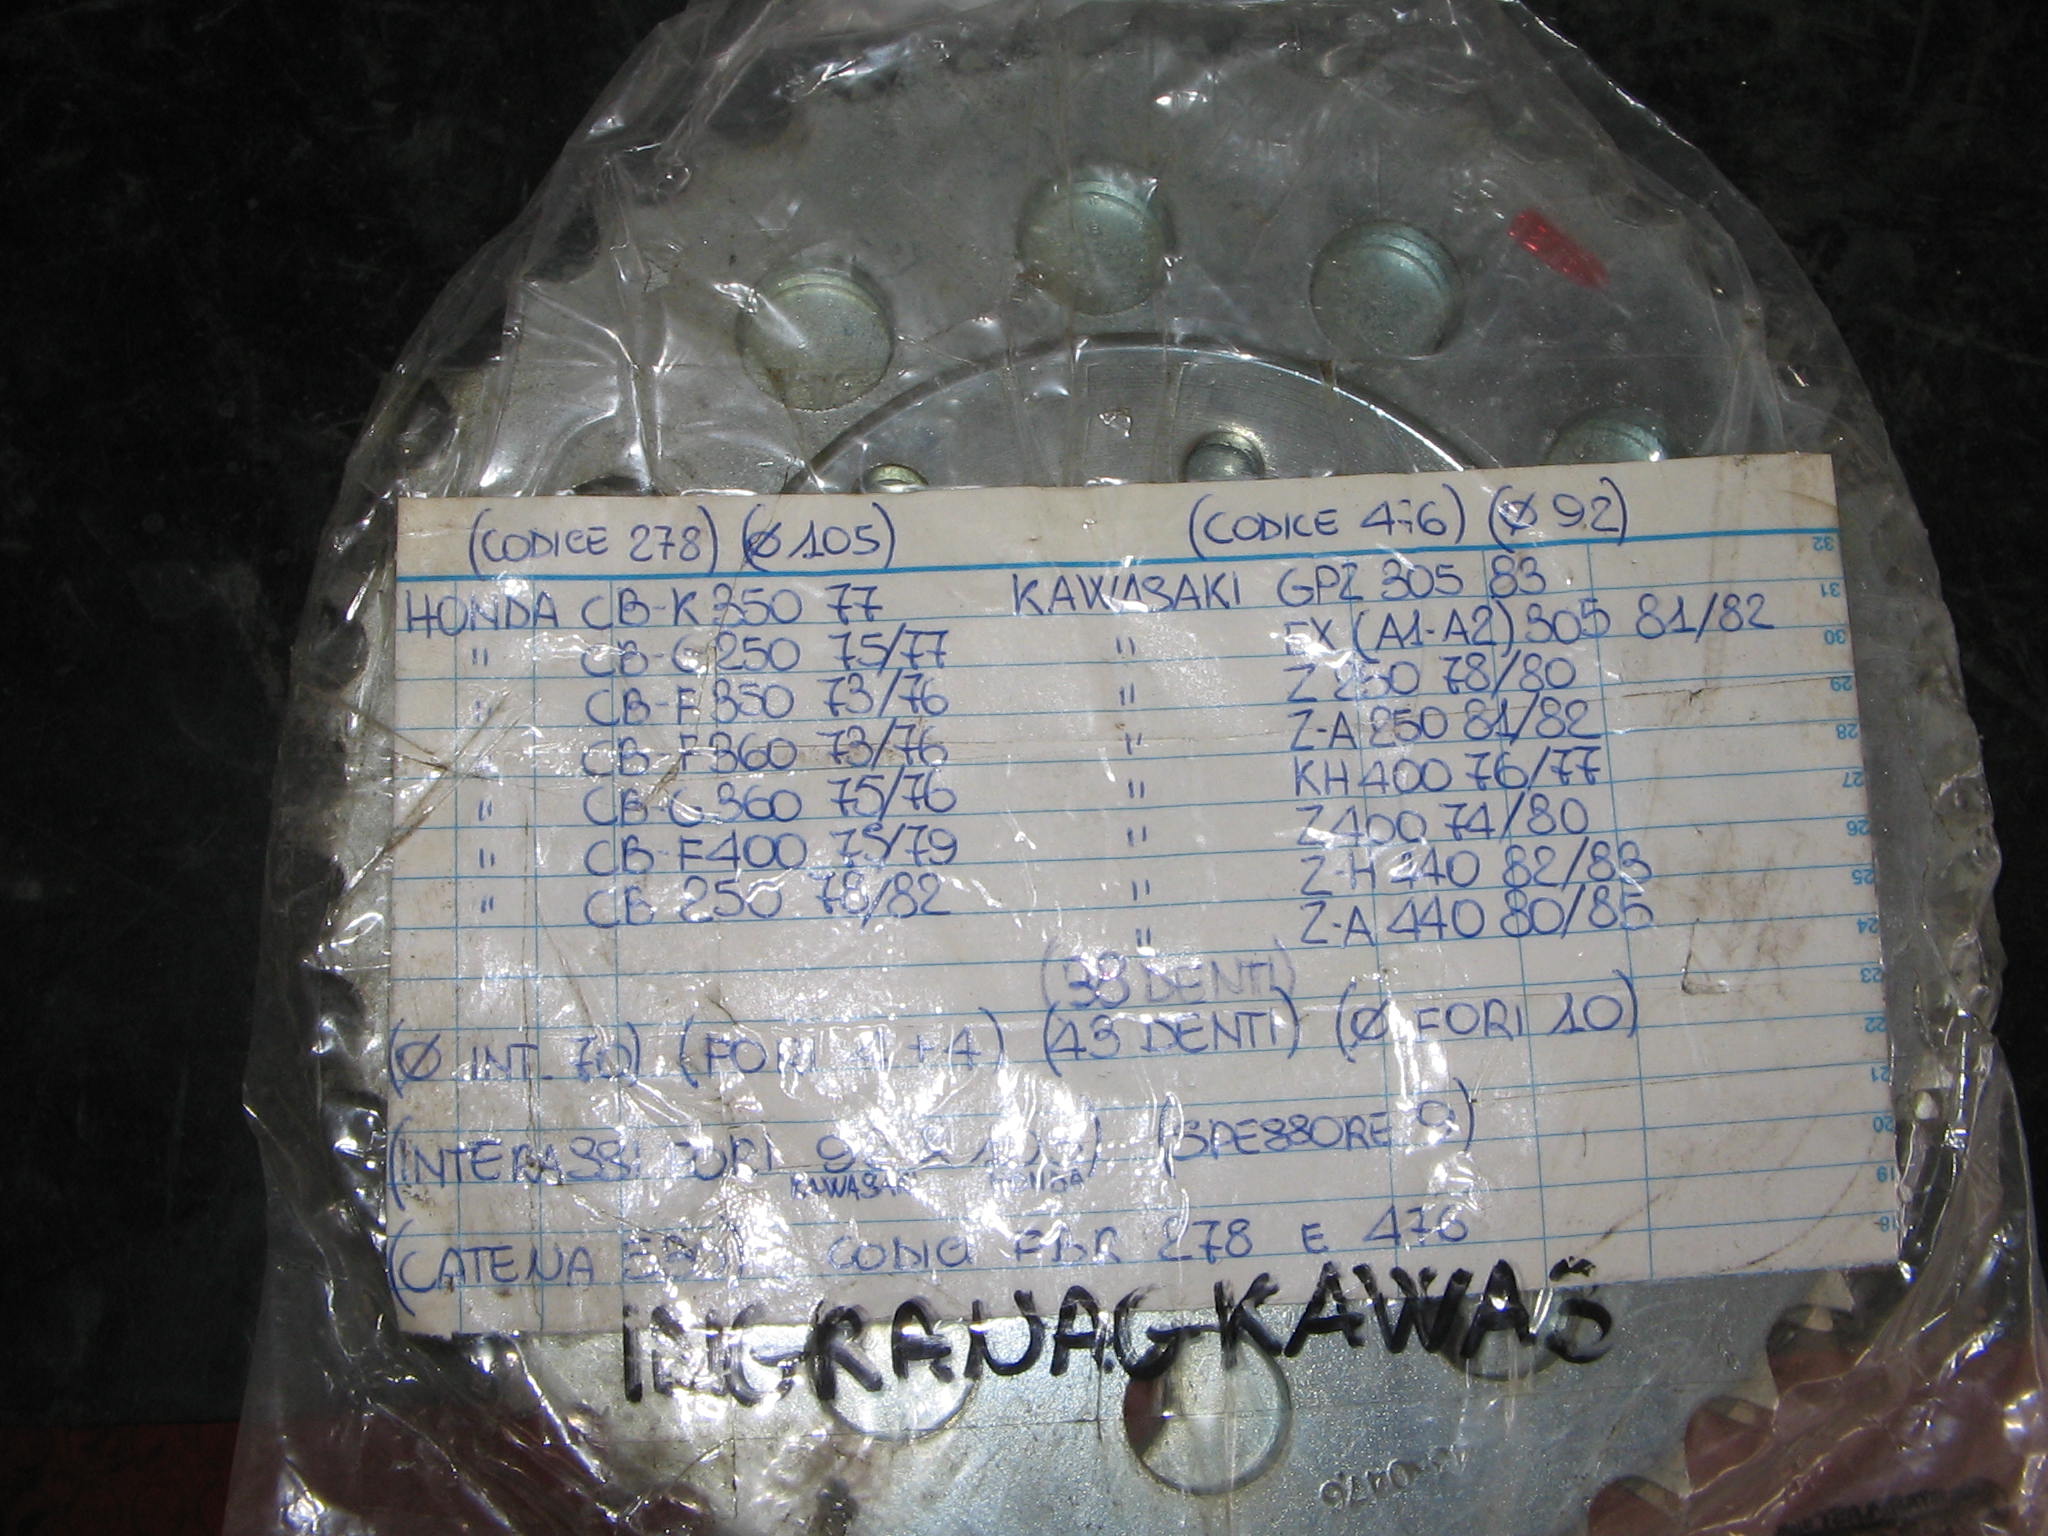 (CODICE 278) (Ø 105) (CODICE 476) (Ø 92)
HONDA CB-K 350 77 KAWASAKI GPZ 305 83
" CB-G 250 75/77 " EX (A1-A2) 305 81/82
" CB-F 350 73/76 " Z 250 78/80
CB-F 360 73/76 " Z-A 250 81/82
" CB-G 360 75/76 " KH 400 76/77
" CB-F 400 75/79 " Z 400 74/80
" CB 250 78/82 " Z-H 440 82/83
" Z-A 440 80/85
(38 DENTI)
(Ø INT. 70) (FORI 4+4) (43 DENTI) (Ø FORI 10)
(INTERASSI FORI (SPESSORE 9)
KAWASAKI HONDA
(CATENA 278 E 476
INGRANAG KAWAS
32
31
30
29
28
27
26
25
24
23
22
21
20
19
18